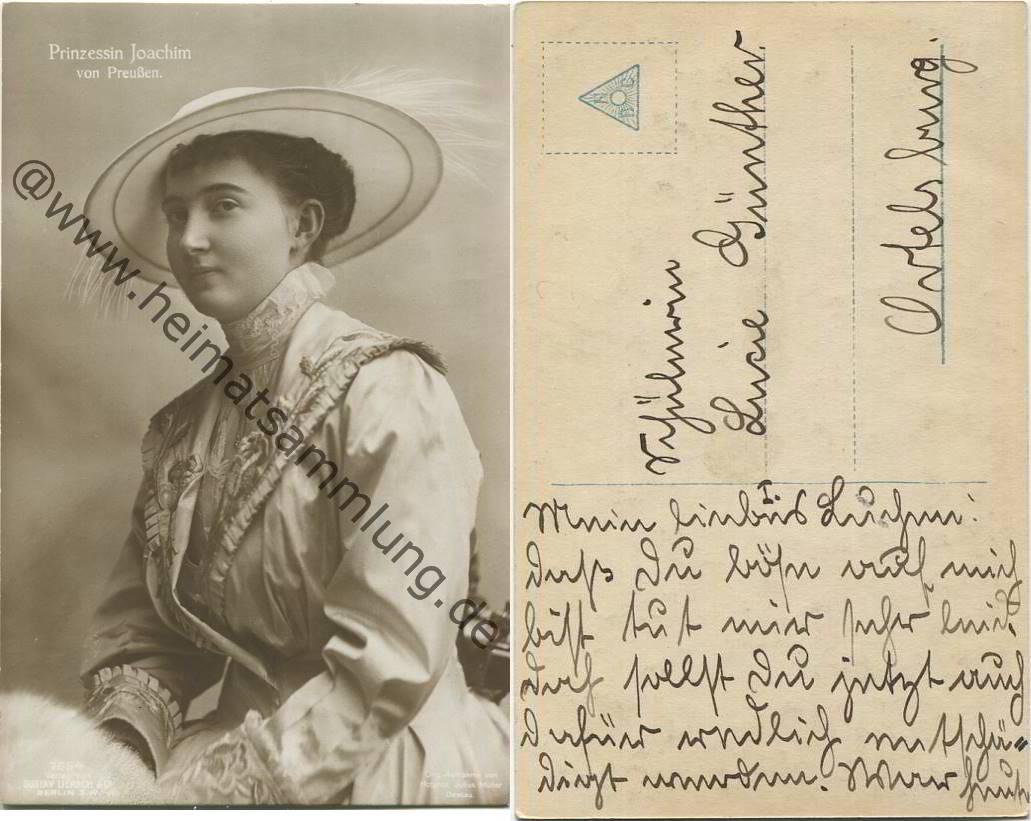 Prinzessin Joachim
von Preußen.
@www.heimatsammlung.de
7654
Verlag von
GUSTAV LIERSCH & Co.
BERLIN S.W.
Orig. Aufnahme von
Hofphot. Julius Müller
Dessau.
Schülerin
Lucie Günther
Ortelsburg.
I.
Mein liebes Luchen!
daß Du böse auf mich
bist tut mir sehr leid.
Doch sollst Du jetzt auch
dafür endlich entschä=
digt werden. War heute